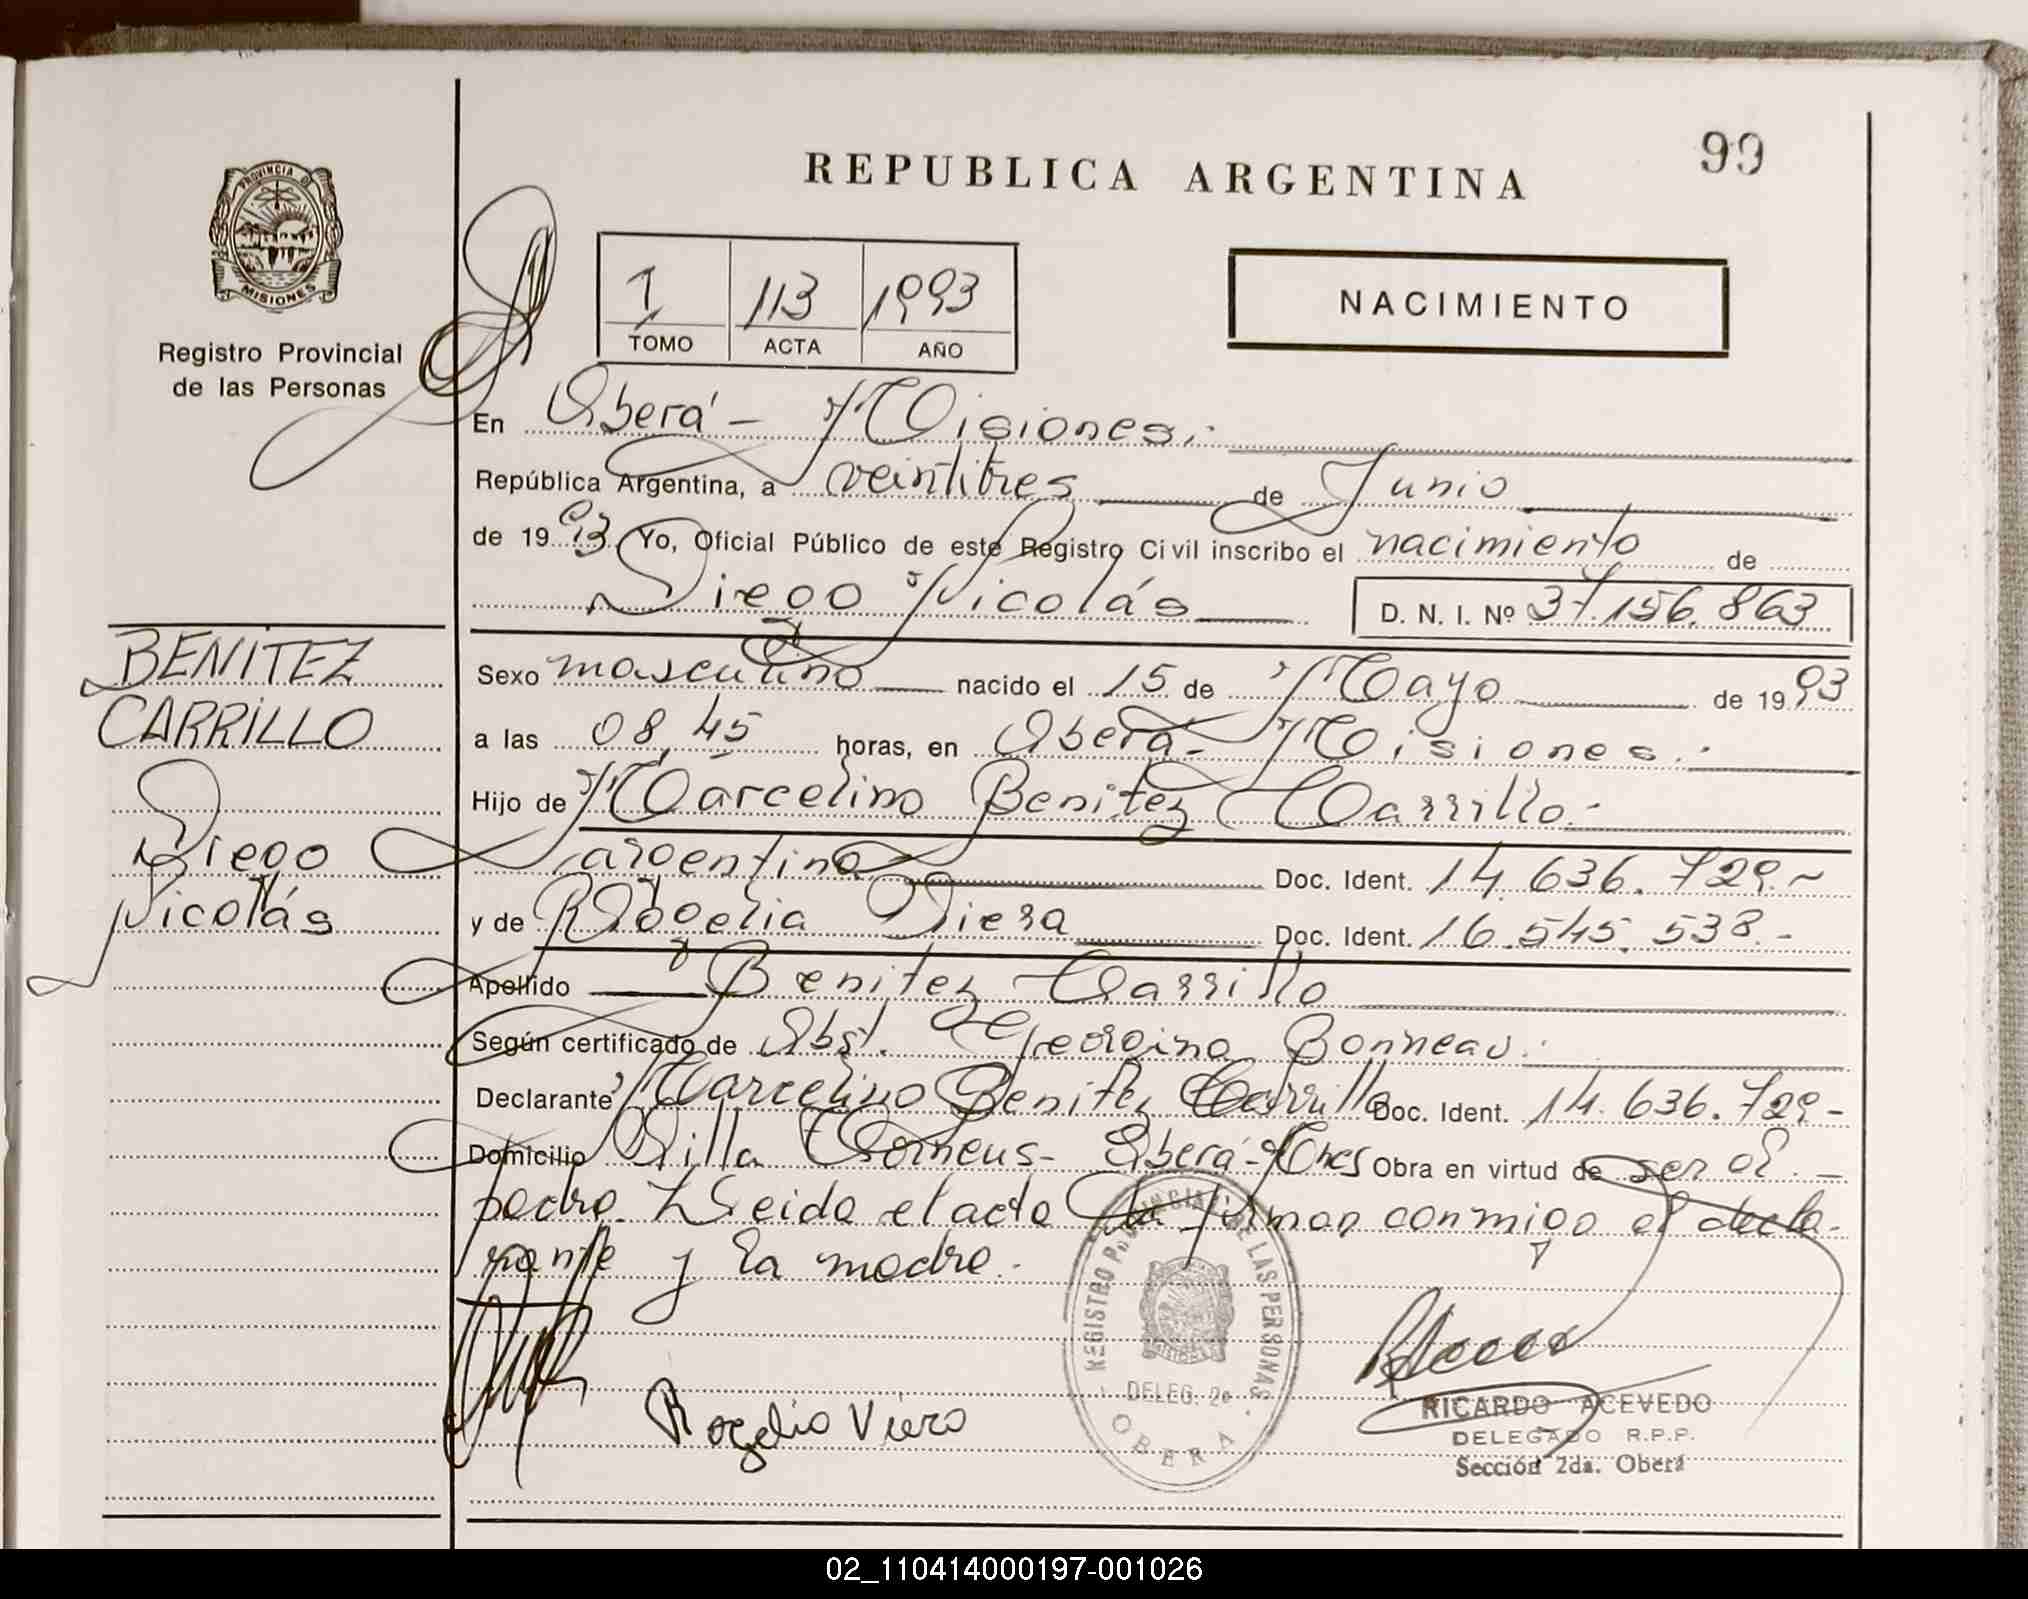 REPUBLICA ARGENTINA
99
PROVINCIA D
MISIONES
Registro Provincial
de las Personas
1 113 1993
TOMO ACTA AÑO
NACIMIENTO
En Oberá - Misiones.-
República Argentina, a veintitres de Junio
de 1993 Yo, Oficial Público de este Registro Civil inscribo el nacimiento de
Diego Nicolás D. N. I. Nº 37.156.863
BENITEZ
CARRILLO
Diego
Nicolás
Sexo masculino nacido el 15 de Mayo de 1993
a las 08,45 horas, en Oberá - Misiones.-
Hijo de Marcelino Benitez Carrillo.-
argentino Doc. Ident. 14.636.729.-
y de Rogelia Viera Doc. Ident. 16.545.538.-
Apellido Benitez Carrillo
Según certificado de Obst. Georgina Bonneau.-
Declarante Marcelino Benitez Carrillo Doc. Ident. 14.636.729-
Domicilio Villa Oberá - Mnes Obra en virtud de ser el -
padre. Leida el acta la firman conmigo el decla-
rante y la madre.-
REGISTRO PROVINCIAL DE LAS PERSONAS
DELEG. 2ª
OBERA
Rogelia Viera
RICARDO ACEVEDO
DELEGADO R.P.P.
Sección 2da. Oberá
02_110414000197-001026